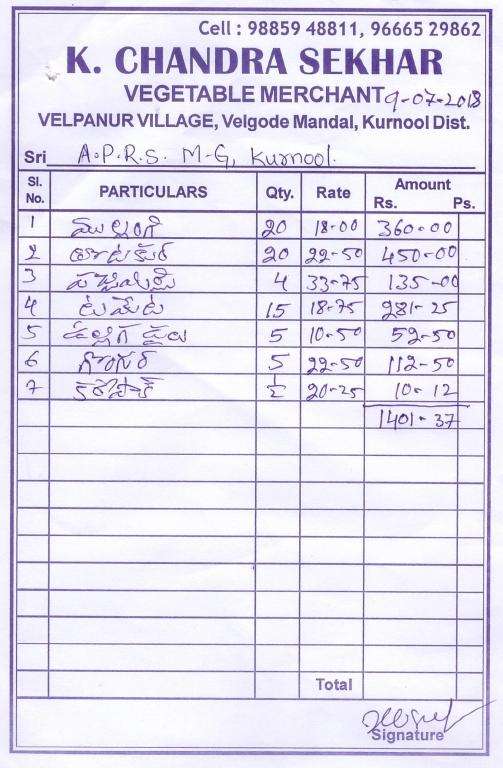 Cell : 98859 48811, 96665 29862
K. CHANDRA SEKHAR
VEGETABLE MERCHANT 9-07-2018
VELPANUR VILLAGE, Velgode Mandal, Kurnool Dist.
Sri A.P.R.S. M-G, Kurnool.
Sl. No. PARTICULARS Qty. Rate Amount Rs. Ps.
1 ముల్లంగి 20 18-00 360-00
2 తోటకూర 20 22-50 450-00
3 పచ్చిమిర్చి 4 33-75 135-00
4 టమేట 15 18-75 281-25
5 ఉల్లిగడ్డలు 5 10-50 52-50
6 గోంగూర 5 22-50 112-50
7 కరేపాక్ ½ 20-25 10-12
1401-37
Total
Signature